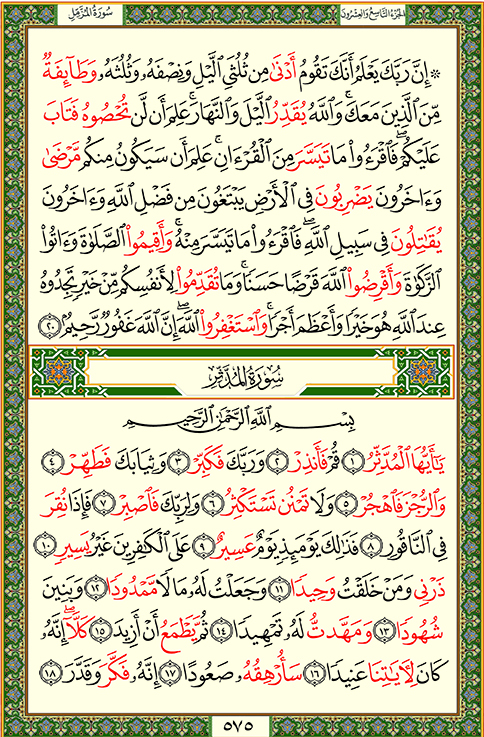 الجزء التاسع والعشرون
سورة المزمل
۞ إِنَّ رَبَّكَ يَعْلَمُ أَنَّكَ تَقُومُ أَدْنَىٰ مِن ثُلُثَيِ ٱلَّيْلِ وَنِصْفَهُۥ وَثُلُثَهُۥ وَطَآئِفَةٌ
مِّنَ ٱلَّذِينَ مَعَكَ ۚ وَٱللَّهُ يُقَدِّرُ ٱلَّيْلَ وَٱلنَّهَارَ ۚ عَلِمَ أَن لَّن تُحْصُوهُ فَتَابَ
عَلَيْكُمْ ۖ فَٱقْرَءُوا۟ مَا تَيَسَّرَ مِنَ ٱلْقُرْءَانِ ۚ عَلِمَ أَن سَيَكُونُ مِنكُم مَّرْضَىٰ
وَءَاخَرُونَ يَضْرِبُونَ فِى ٱلْأَرْضِ يَبْتَغُونَ مِن فَضْلِ ٱللَّهِ ۙ وَءَاخَرُونَ
يُقَٰتِلُونَ فِى سَبِيلِ ٱللَّهِ ۖ فَٱقْرَءُوا۟ مَا تَيَسَّرَ مِنْهُ ۚ وَأَقِيمُوا۟ ٱلصَّلَوٰةَ وَءَاتُوا۟
ٱلزَّكَوٰةَ وَأَقْرِضُوا۟ ٱللَّهَ قَرْضًا حَسَنًا ۚ وَمَا تُقَدِّمُوا۟ لِأَنفُسِكُم مِّنْ خَيْرٍ تَجِدُوهُ
عِندَ ٱللَّهِ هُوَ خَيْرًا وَأَعْظَمَ أَجْرًا ۚ وَٱسْتَغْفِرُوا۟ ٱللَّهَ ۖ إِنَّ ٱللَّهَ غَفُورٌ رَّحِيمٌۢ ٢٠
سُورَةُ المُدَّثِّرِ
بِسْمِ ٱللَّهِ ٱلرَّحْمَٰنِ ٱلرَّحِيمِ
يَٰٓأَيُّهَا ٱلْمُدَّثِّرُ ١ قُمْ فَأَنذِرْ ٢ وَرَبَّكَ فَكَبِّرْ ٣ وَثِيَابَكَ فَطَهِّرْ ٤
وَٱلرُّجْزَ فَٱهْجُرْ ٥ وَلَا تَمْنُن تَسْتَكْثِرُ ٦ وَلِرَبِّكَ فَٱصْبِرْ ٧ فَإِذَا نُقِرَ
فِى ٱلنَّاقُورِ ٨ فَذَٰلِكَ يَوْمَئِذٍ يَوْمٌ عَسِيرٌ ٩ عَلَى ٱلْكَٰفِرِينَ غَيْرُ يَسِيرٍ ١٠
ذَرْنِى وَمَنْ خَلَقْتُ وَحِيدًا ١١ وَجَعَلْتُ لَهُۥ مَالًا مَّمْدُودًا ١٢ وَبَنِينَ
شُهُودًا ١٣ وَمَهَّدتُّ لَهُۥ تَمْهِيدًا ١٤ ثُمَّ يَطْمَعُ أَنْ أَزِيدَ ١٥ كَلَّآ ۖ إِنَّهُۥ
كَانَ لِءَايَٰتِنَا عَنِيدًا ١٦ سَأُرْهِقُهُۥ صَعُودًا ١٧ إِنَّهُۥ فَكَّرَ وَقَدَّرَ ١٨
٥٧٥